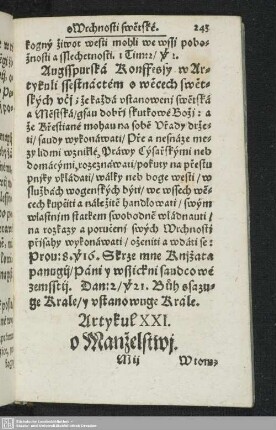 oWrchnosti swětské. 243
kogný žiwot westi mohli we wssi pobo-
žnosti a sslechetnosti. 1 Tim: 2/ ỹ 2.
Augsspurská Konffessy w Ar-
tykuli ssestnáctém o wěcech swět-
ských včj: že každá vstanowenj swětská
a Městská/ gsau dobřj skutkowé Božj: a
že Křestiané mohau na sobě Vřady drže-
ti/ saudy wykonáwati/ Pře a nesnáze me-
zy lidmi wzniklé/ Práwy Cýsařskými neb
domacými/ rozeznáwati/ pokuty na přestu
pnjky vkládati/ wálky neb doge westi/ w
službách wogenských býti/ we wssech wě-
cech kupčiti a náležitě handlowati/ swým
wlastnjm statkem swobodně wládnauti/
na rozkazy a poručenj swých Wrchnostj
přjsahy wykonáwati/ oženiti a wdáti se:
Prou: 8. ỹ 16. Skrze mne Knjžata
panugj/ Páni y wssickni saudcowé
zemsstij. Dan: 2/ ỹ 21. Bůh ssazu-
ge Krále/ y vstanowuge Krále.
Artykul XXI.
o Manželstwj.
M ij W tomz